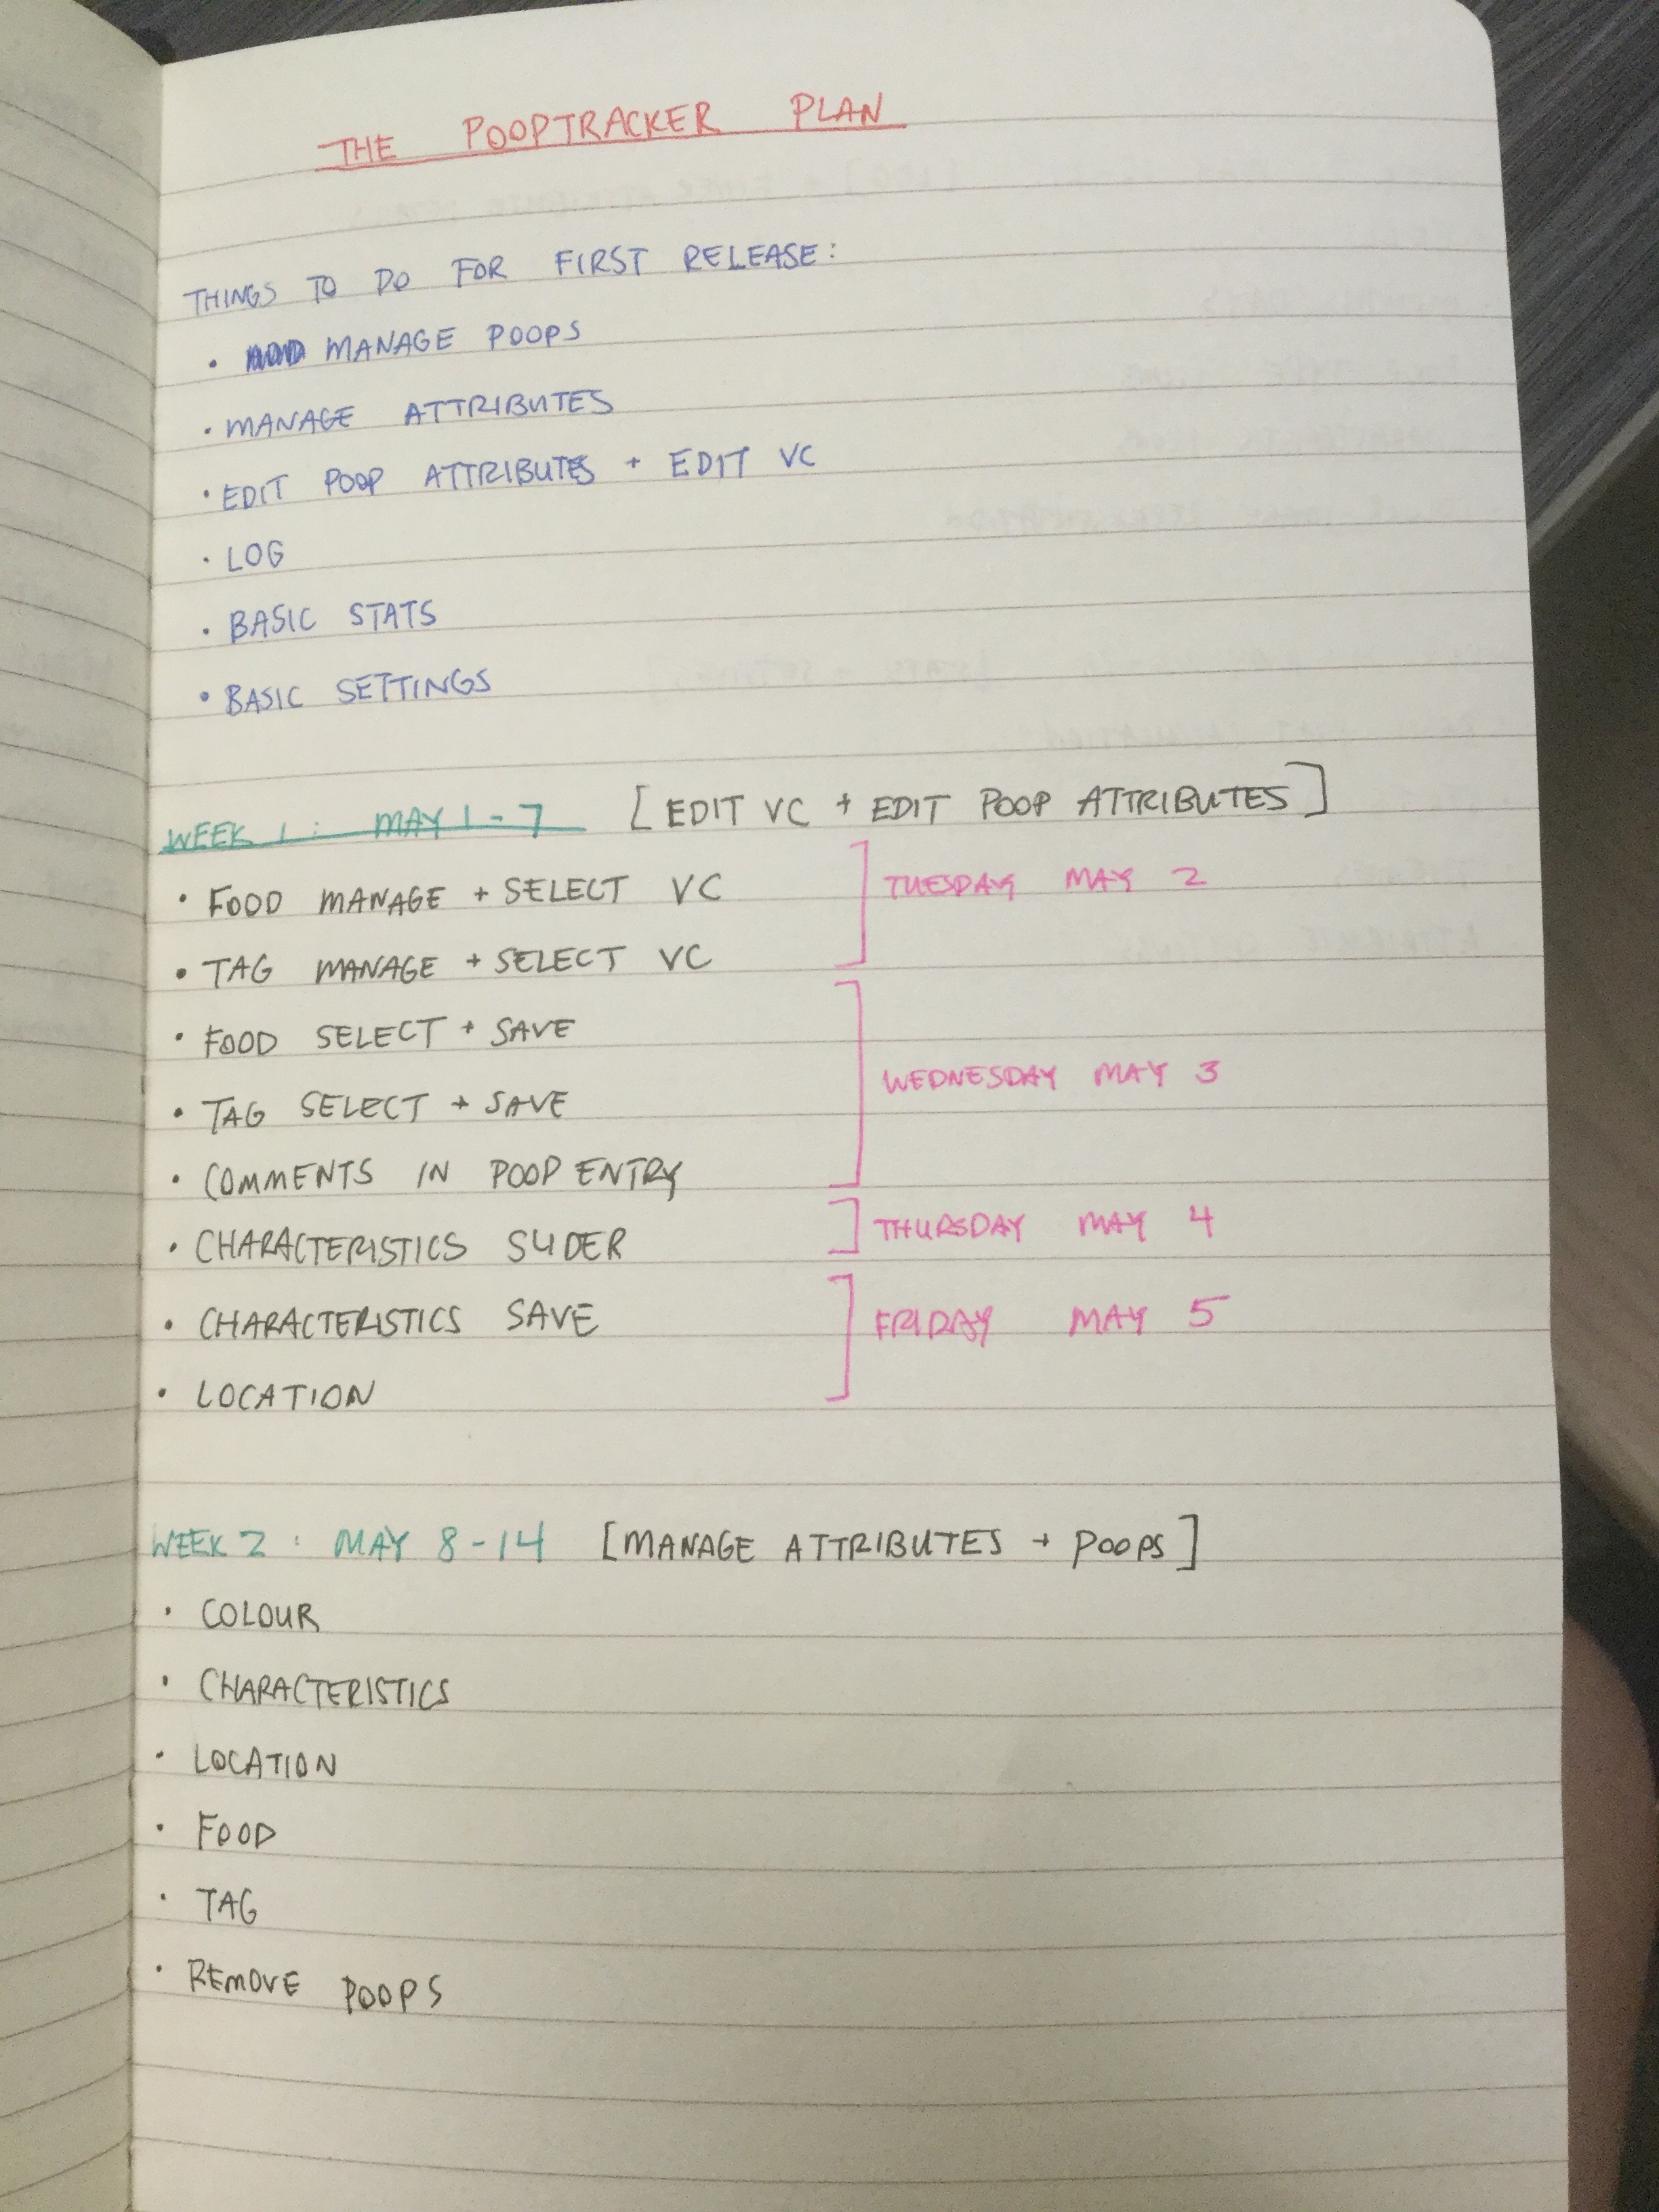 THE POOPTRACKER PLAN
THINGS TO DO FOR FIRST RELEASE:
• MANAGE POOPS
• MANAGE ATTRIBUTES
• EDIT POOP ATTRIBUTES + EDIT VC
• LOG
• BASIC STATS
• BASIC SETTINGS
WEEK 1: MAY 1-7 [EDIT VC + EDIT POOP ATTRIBUTES]
• FOOD MANAGE + SELECT VC ] TUESDAY MAY 2
• TAG MANAGE + SELECT VC
• FOOD SELECT + SAVE
• TAG SELECT + SAVE ] WEDNESDAY MAY 3
• COMMENTS IN POOP ENTRY
• CHARACTERISTICS SLIDER ] THURSDAY MAY 4
• CHARACTERISTICS SAVE ] FRIDAY MAY 5
• LOCATION
WEEK 2: MAY 8-14 [MANAGE ATTRIBUTES + POOPS]
• COLOUR
• CHARACTERISTICS
• LOCATION
• FOOD
• TAG
• REMOVE POOPS